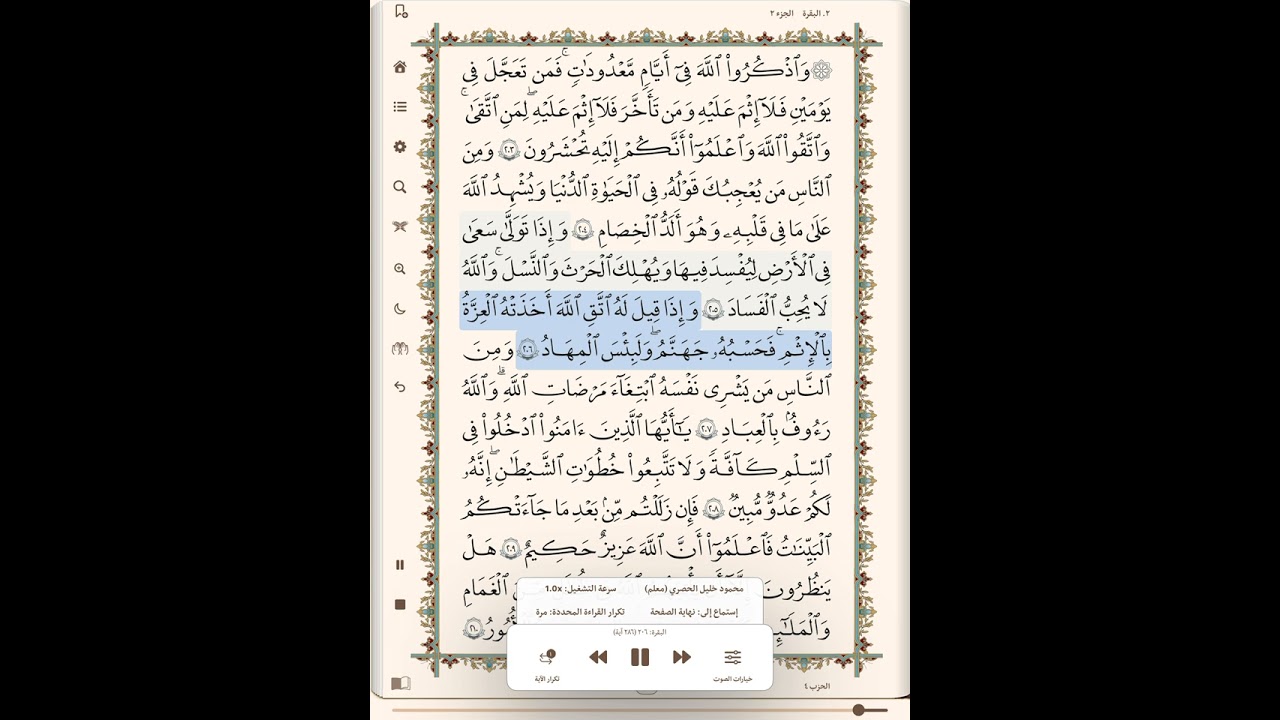 ٢. البقرة الجزء ٢
۞ وَٱذۡكُرُواْ ٱللَّهَ فِيٓ أَيَّامٖ مَّعۡدُودَٰتٖۚ فَمَن تَعَجَّلَ فِي
يَوۡمَيۡنِ فَلَآ إِثۡمَ عَلَيۡهِ وَمَن تَأَخَّرَ فَلَآ إِثۡمَ عَلَيۡهِۖ لِمَنِ ٱتَّقَىٰۚ
وَٱتَّقُواْ ٱللَّهَ وَٱعۡلَمُوٓاْ أَنَّكُمۡ إِلَيۡهِ تُحۡشَرُونَ ٢٠٣ وَمِنَ
ٱلنَّاسِ مَن يُعۡجِبُكَ قَوۡلُهُۥ فِي ٱلۡحَيَوٰةِ ٱلدُّنۡيَا وَيُشۡهِدُ ٱللَّهَ
عَلَىٰ مَا فِي قَلۡبِهِۦ وَهُوَ أَلَدُّ ٱلۡخِصَامِ ٢٠٤ وَإِذَا تَوَلَّىٰ سَعَىٰ
فِي ٱلۡأَرۡضِ لِيُفۡسِدَ فِيهَا وَيُهۡلِكَ ٱلۡحَرۡثَ وَٱلنَّسۡلَۚ وَٱللَّهُ
لَا يُحِبُّ ٱلۡفَسَادَ ٢٠٥ وَإِذَا قِيلَ لَهُ ٱتَّقِ ٱللَّهَ أَخَذَتۡهُ ٱلۡعِزَّةُ
بِٱلۡإِثۡمِۚ فَحَسۡبُهُۥ جَهَنَّمُۖ وَلَبِئۡسَ ٱلۡمِهَادُ ٢٠٦ وَمِنَ
ٱلنَّاسِ مَن يَشۡرِي نَفۡسَهُ ٱبۡتِغَآءَ مَرۡضَاتِ ٱللَّهِۚ وَٱللَّهُ
رَءُوفُۢ بِٱلۡعِبَادِ ٢٠٧ يَٰٓأَيُّهَا ٱلَّذِينَ ءَامَنُواْ ٱدۡخُلُواْ فِي
ٱلسِّلۡمِ كَآفَّةٗ وَلَا تَتَّبِعُواْ خُطُوَٰتِ ٱلشَّيۡطَٰنِۖ إِنَّهُۥ
لَكُمۡ عَدُوّٞ مُّبِينٞ ٢٠٨ فَإِن زَلَلۡتُم مِّنۢ بَعۡدِ مَا جَآءَتۡكُمُ
ٱلۡبَيِّنَٰتُ فَٱعۡلَمُوٓاْ أَنَّ ٱللَّهَ عَزِيزٌ حَكِيمٌ ٢٠٩ هَلۡ
يَنظُرُونَ ٱلۡغَمَامِ
محمود خليل الحصري (معلم) سرعة التشغيل: 1.0x
إستماع إلى: نهاية الصفحة تكرار القراءة المحددة: مرة
٢١٠
البقرة: ٢٠٦ (٢٨٦ آية)
خيارات الصوت تكرار الآية
الحزب ٤